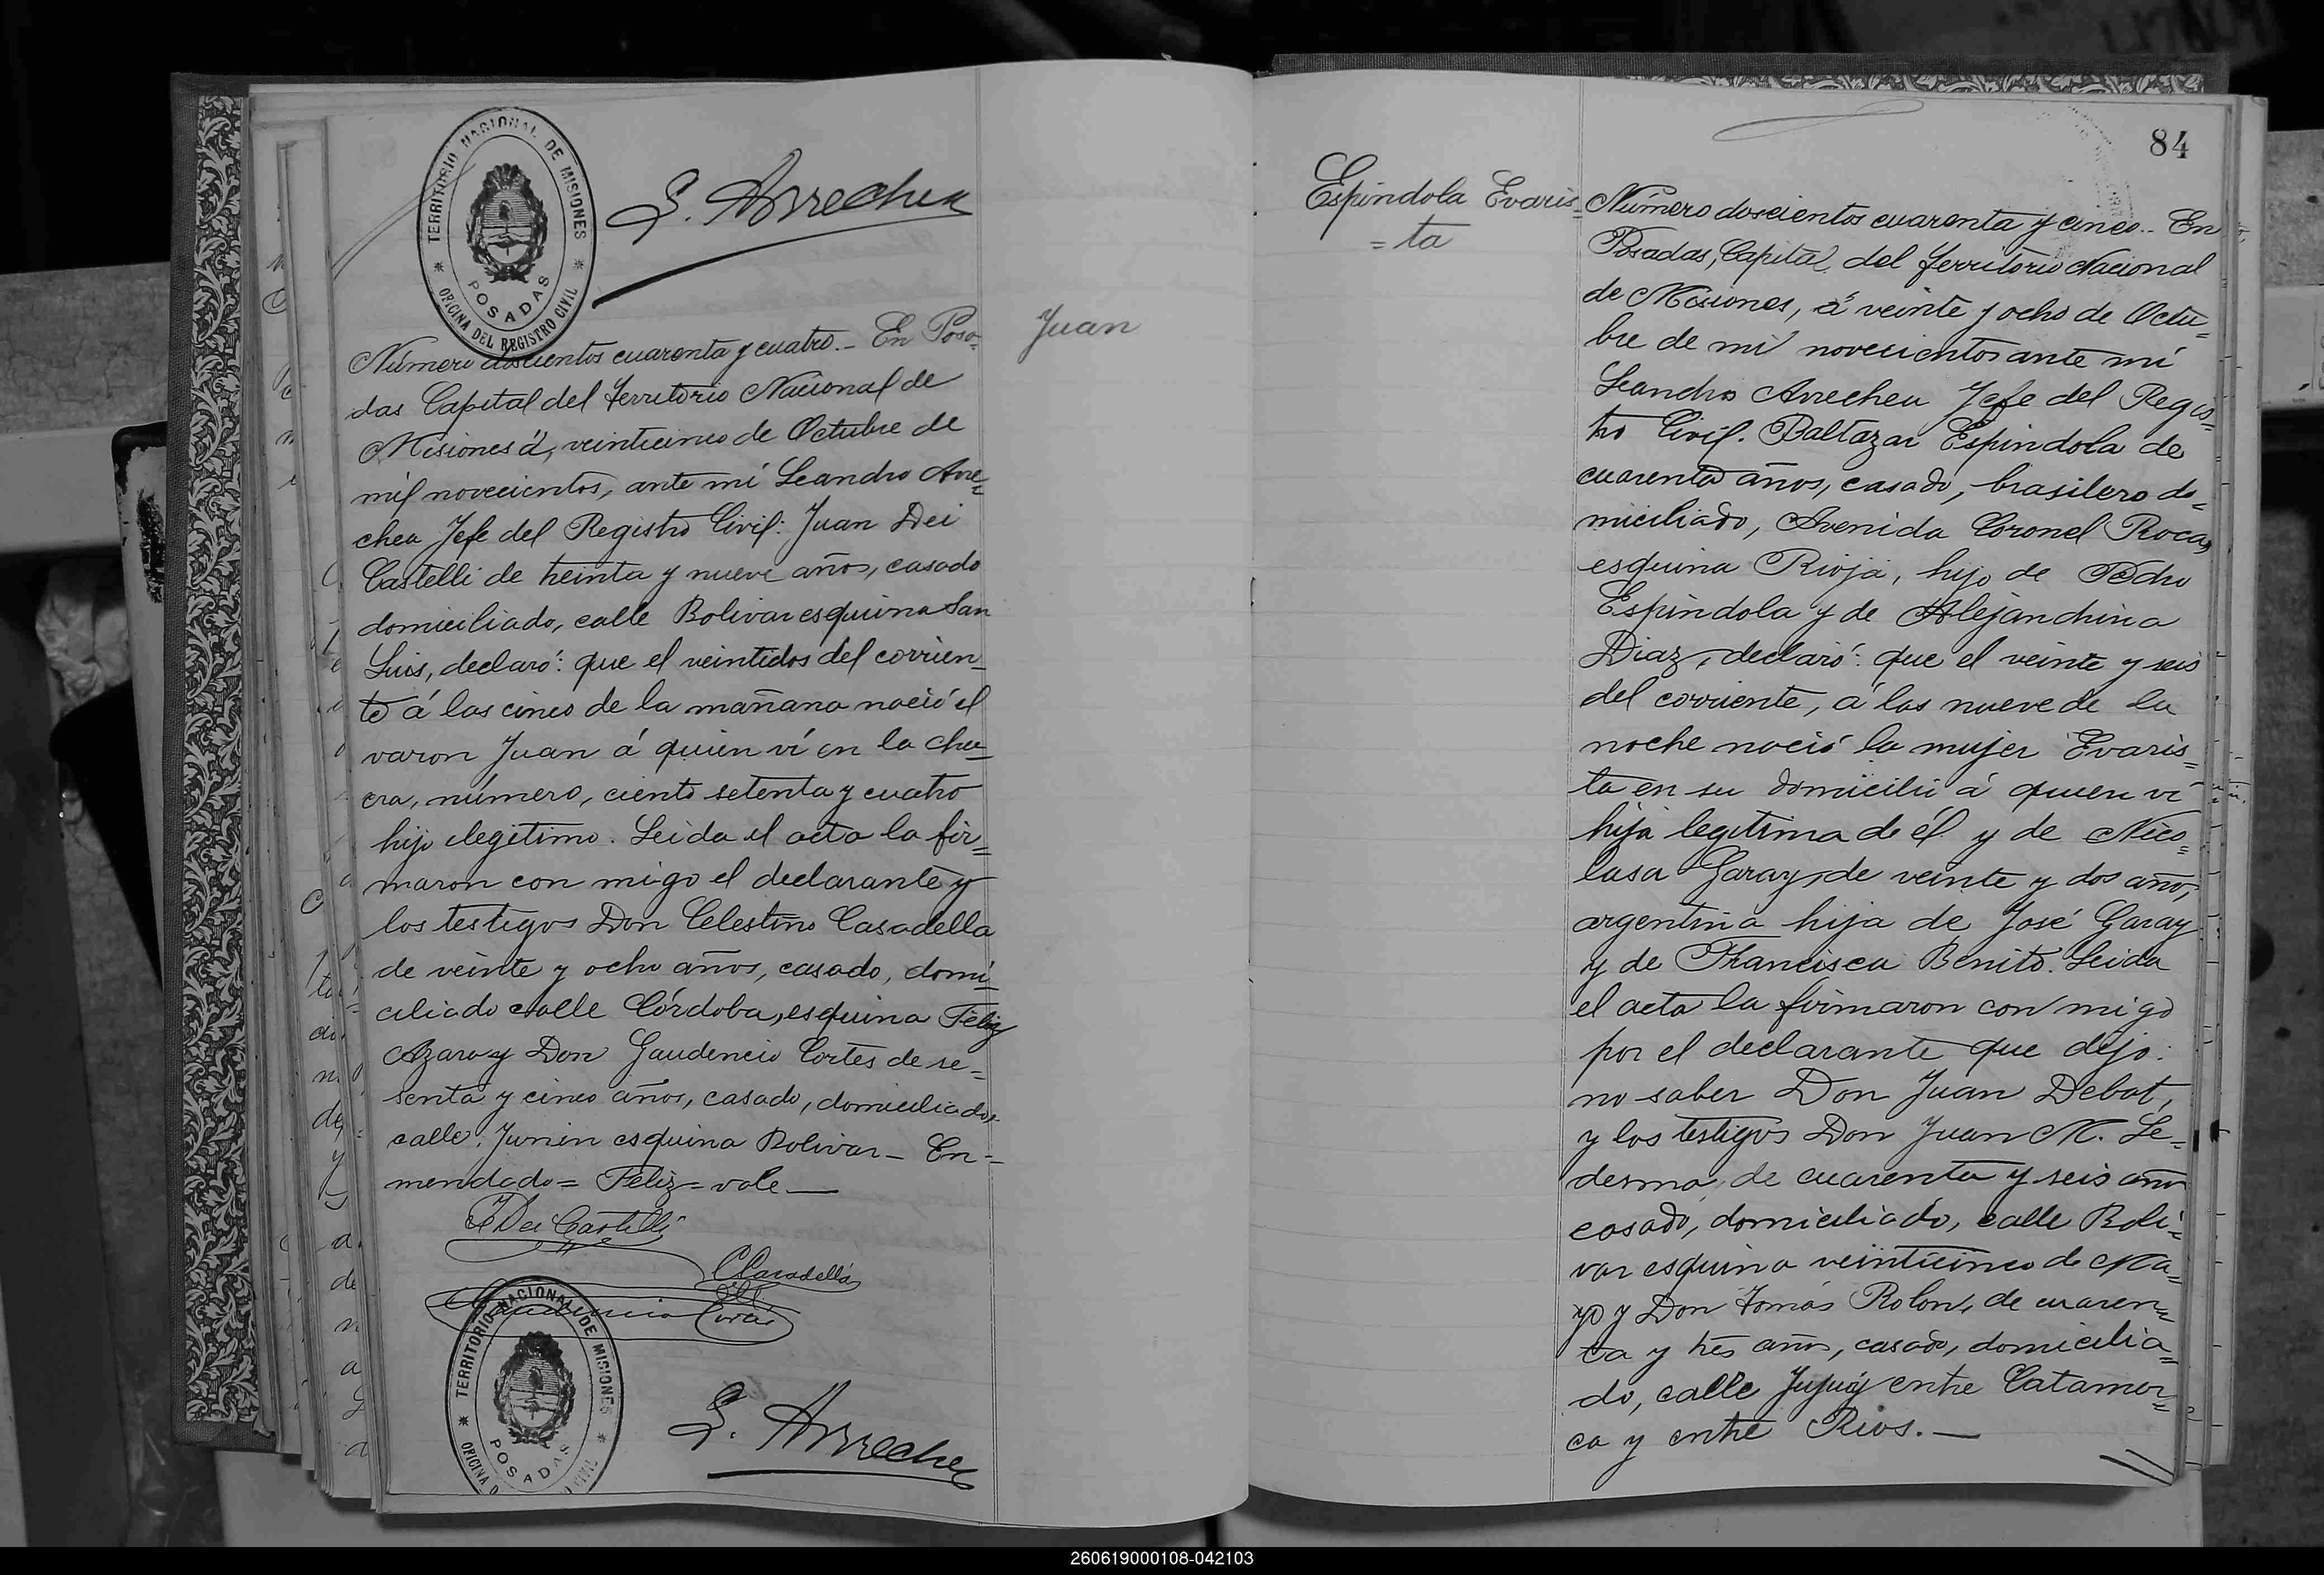 TERRITORIO NACIONAL DE MISIONES
POSADAS
OFICINA DEL REGISTRO CIVIL
L. Arrechea
Juan
Número doscientos cuarenta y cuatro.- En Posa-
das Capital del Territorio Nacional de
Misiones á, veinticinco de Octubre de
mil novecientos, ante mí Leandro Arre=
chea Jefe del Registro Civil: Juan Dei
Castelli de treinta y nueve años, casado
domiciliado, calle Bolivar esquina San
Luis, declaró: que el veintidos del corrien-
te á las cinco de la mañana nació el
varon Juan á quien ví en la cha=
cra, número, ciento setenta y cuatro
hijo ilegitimo. Leida el acta la fir=
maron con migo el declarante y
los testigos Don Celestino Casadella
de veinte y ocho años, casado, domi-
ciliado calle Córdoba, esquina Féliz
Azara y Don Gaudencio Cortes de se=
senta y cinco años, casado, domiciliado,
calle, Junin esquina Bolivar - En=
mendado= Féliz= vale—
J Dei Castelli
C Casadella
Gaudencio Cortés
TERRITORIO NACIONAL DE MISIONES
POSADAS
OFICINA
CIVIL
L. Arrechea
84
Espindola Evaris=
=ta
Número doscientos cuarenta y cinco.- En
Posadas, Capital, del Territorio Nacional
de Misiones, á veinte y ocho de Octu=
bre de mil novecientos ante mí
Leandro Arrechea Jefe del Regis=
tro Civil. Baltazar Espindola de
cuarenta años, casado, brasilero do=
miciliado, Avenida Coronel Roca,
esquina Rioja, hijo de Pedro
Espindola y de Alejandrina
Diaz, declaró: que el veinte y seis
del corriente, á las nueve de la
noche nació la mujer Evaris=
ta en su domicilio á quien ví
hija legitima de él y de Nico=
lasa Garay, de veinte y dos año,
argentina hija de José Garay
y de Francisca Benito. Leida
el acta la firmaron con migo
por el declarante que dijo:
no saber Don Juan Debat,
y los testigos Don Juan M. Le=
desma, de cuarenta y seis año
casado, domiciliado, calle Boli=
var esquina veinticinco de Ma=
yo y Don Tomás Rolon, de cuaren=
ta y tres años, casado, domicilia=
do, calle Jujuy entre Catamar=
ca y entre Rios.—
260619000108-042103